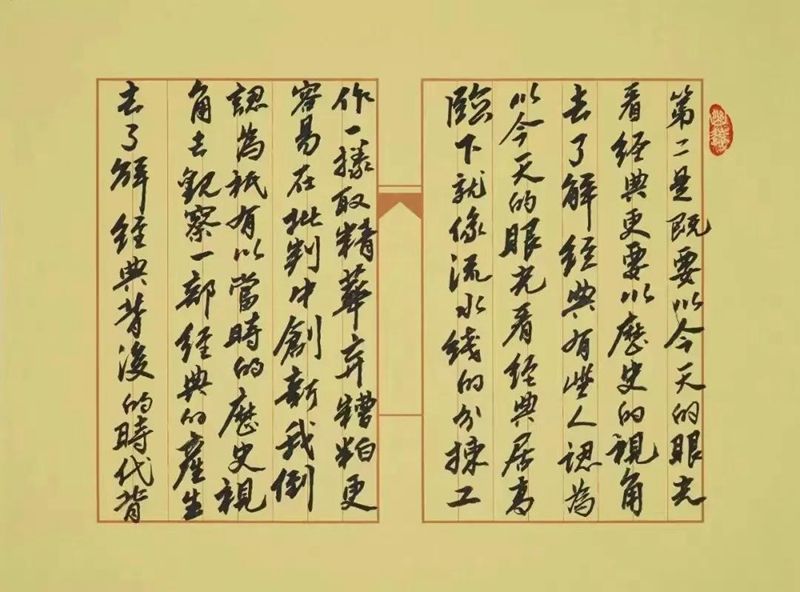 第二是既要以今天的眼光
看經典更要以歷史的視角
去了解經典有些人認為
以今天的眼光看經典居高
臨下就像流水线的分揀工
作一樣取精華弃糟粕更
容易在批判中創新我倒
認為衹有以當時的歷史視
角去觀察一部經典的產生
去了解經典背後的時代背